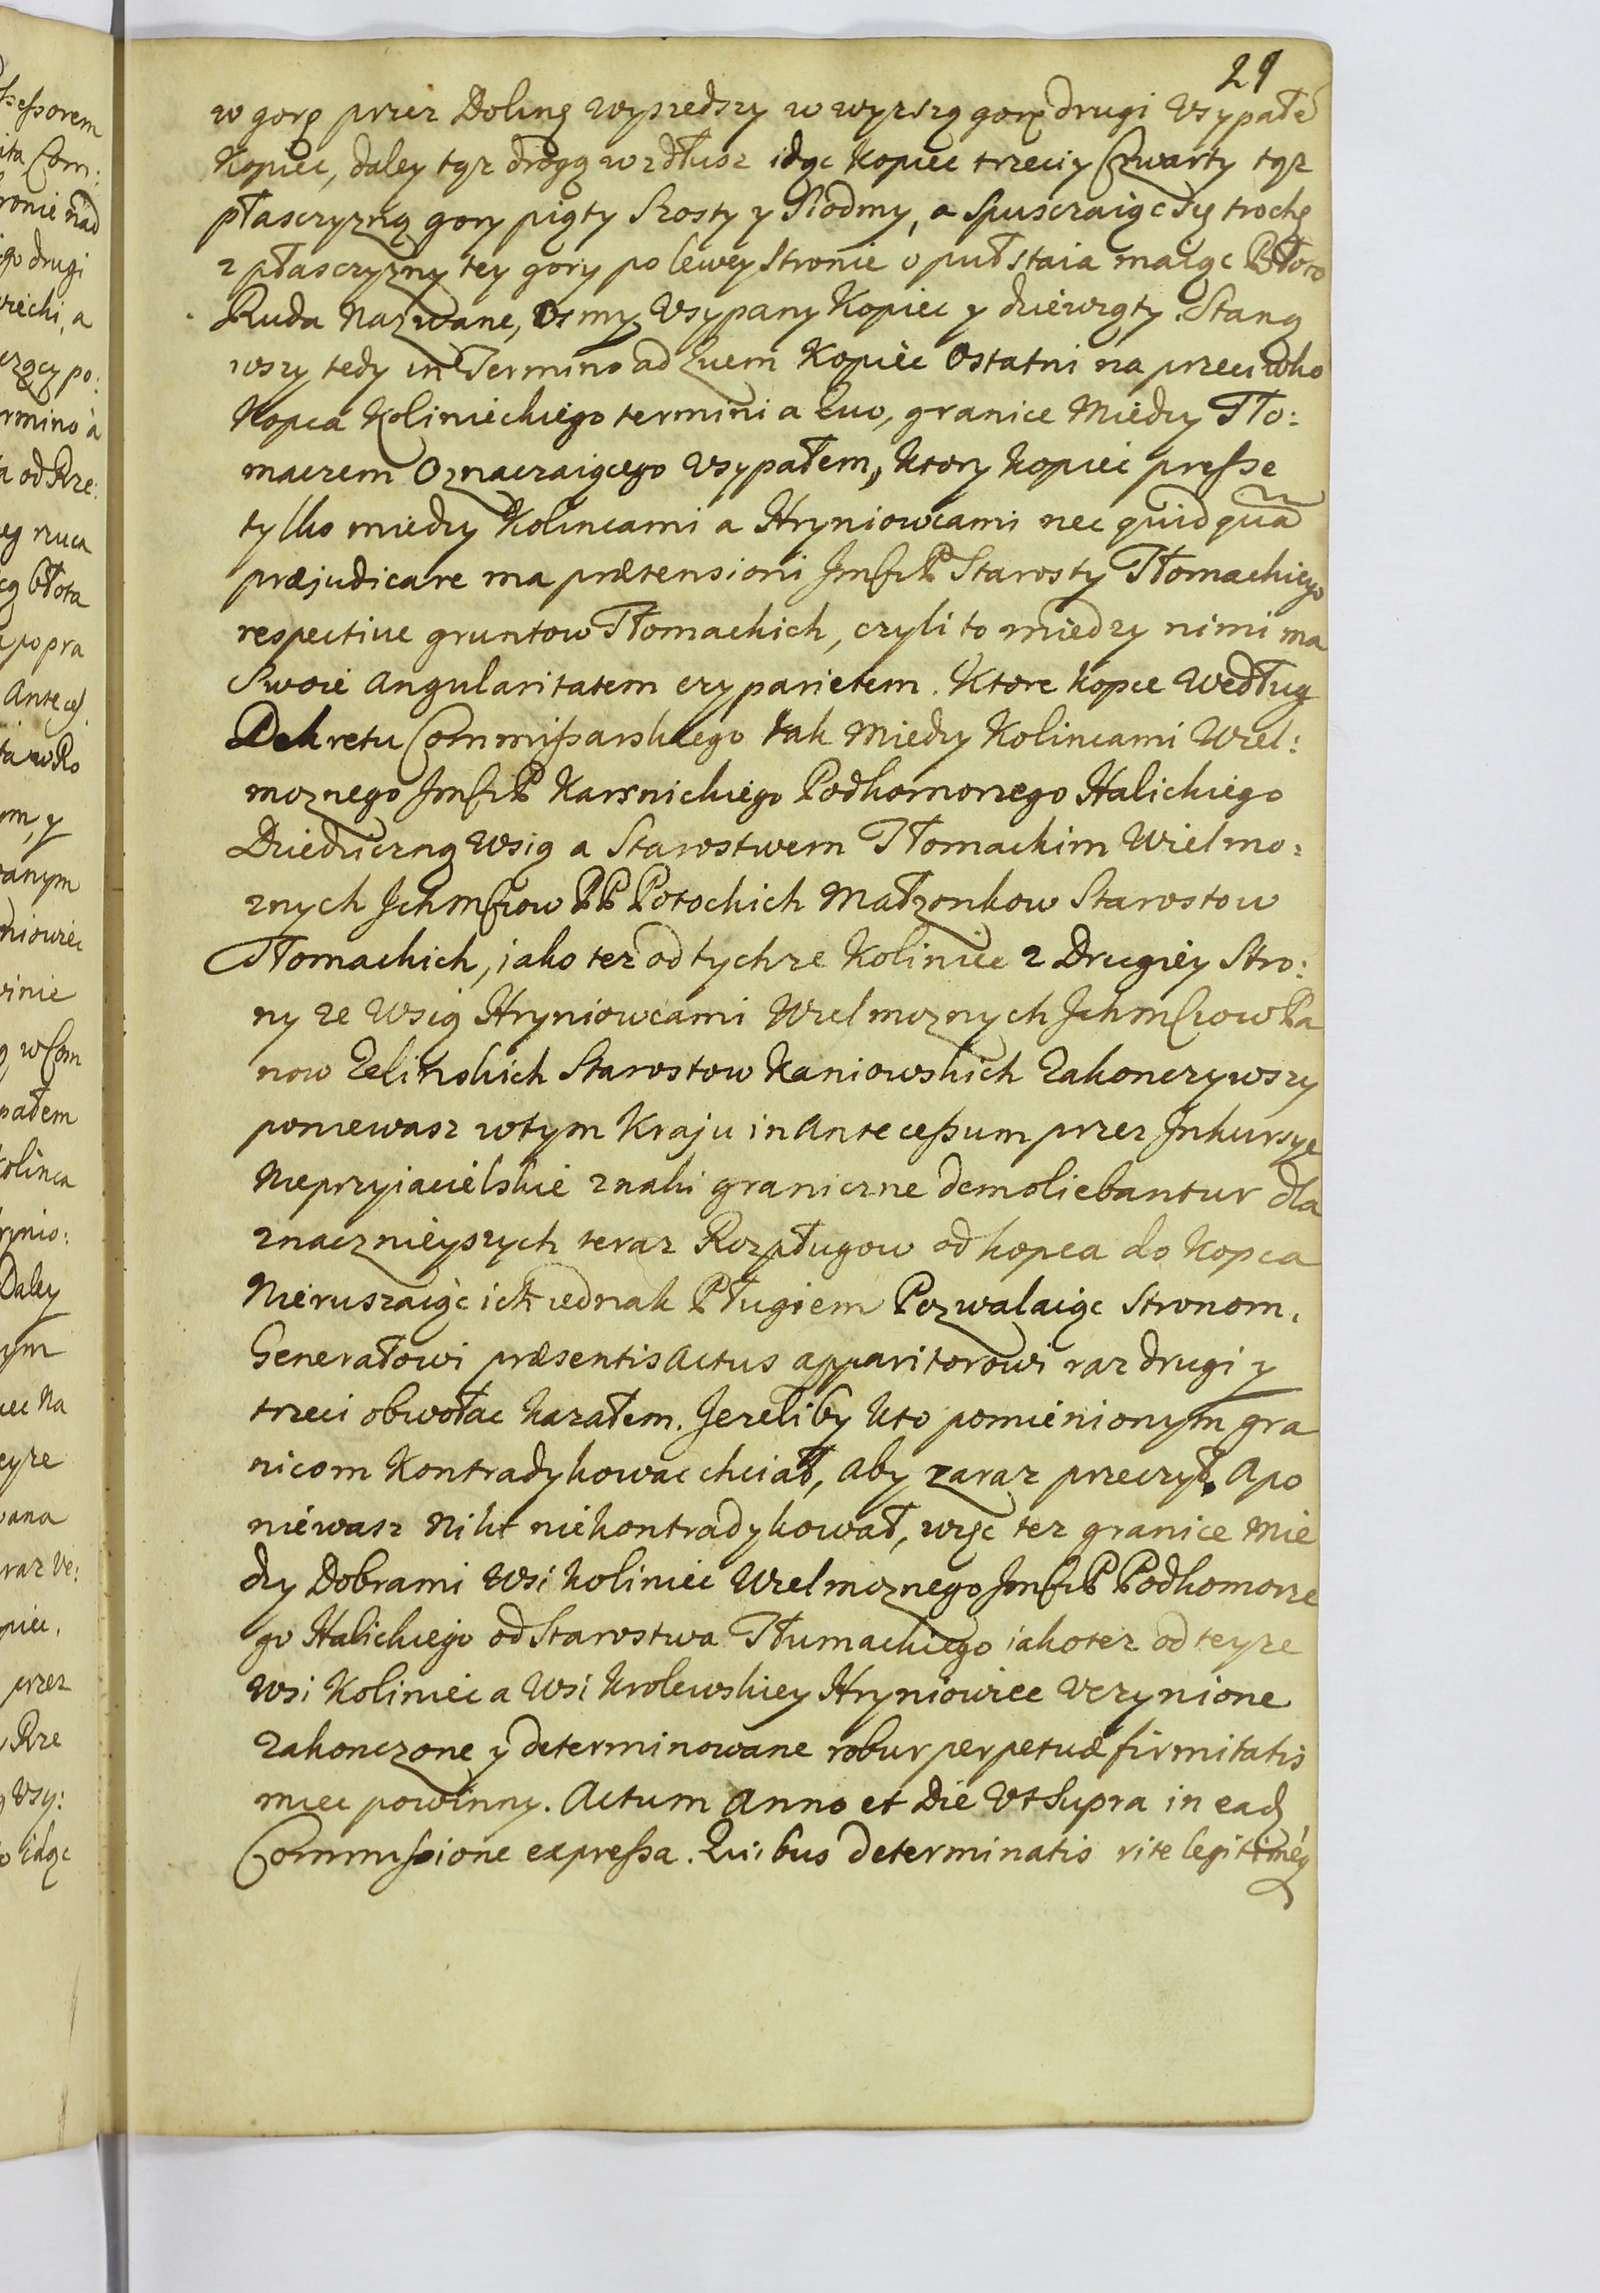 29
w gorę przez Dolinę wyszedszy w wyższą gorę drugi Usypałē
Kopiec, daley tąż drogą wzdłusz idąc Kopiec trzeci y Czwarty tąż
płasczyzną gory piąty Szosty y Siodmy, a Spusczaiąc Się trochę
z płasczyzny tey gory po lewey Stronie o puł staia maiąc Błoto
Ruda Nazwane, Osmy Usypany Kopiec y dziewiąty. Staną
wszy tedy in Termino ad quem Kopiec Ostatni na przeciwko
Kopca Kolinieckiego termini a Quo, granice Miedzy Tło:
maczem Oznaczaiącego Usypałem, Ktory Kopiec presse
tylko miedzy Kolincami a Hryniowcami nec quidquā
præjudicare ma prætensioni JmCi P Starosty Tłomackiego
respective gruntow Tłomackich, czyli to miedzy nimi ma
Swoie Angularitatem czy parietem. Ktore Kopce Według
Dekretu Commissarskiego tak Miedzy Kolincami Wiel:
moznego JmCi P Karsnickiego Podkomorzego Halickiego
Dziedziczną Wsią a Starostwem Tłomackim Wielmo:
znych JchmCiow PP Potockich Małzonkow Starostow
Tłomackich, iako tez od tychze Koliniec z Drugiey Stro:
ny ze Wsią Hryniowcami Wielmoznych JchmCiow Pa
now Zelinskich Starostow Kaniowskich Zakonczywszy
poniewasz w tym Kraju in Antecessum przez Jnkursye
Nieprzyiacielskie znaki graniczne demoliebantur dla
znacznieyszych teraz Rozpługow od kopca do Kopca
Nieruszaiąc ich iednak Pługiem Pozwalaiąc Stronom,
Generałowi præsentis Actus apparitorowi raz drugi y
trzeci obwołac Kazałem. Jezeliby Kto pomienionym gra
nicom Kontradykowac chciał, Aby zaraz przeczył, A po
niewasz Nikt niekontradykował, więc tez granice Mie
dzy Dobrami Wsi Koliniec Wielmoznego JmCi P Podkomorze
go Halickiego od Starostwa Tłumackiego iako tez od teyze
Wsi Koliniec a Wsi Krolewskiey Hryniowiec Uczynione
Zakonczone y determinowane robur perpetuæ firmitatis
miec powinny. Actum Anno et Die Ut Supra in eadȝ
Commissione expressa. Quibus determinatis rite legitimeq